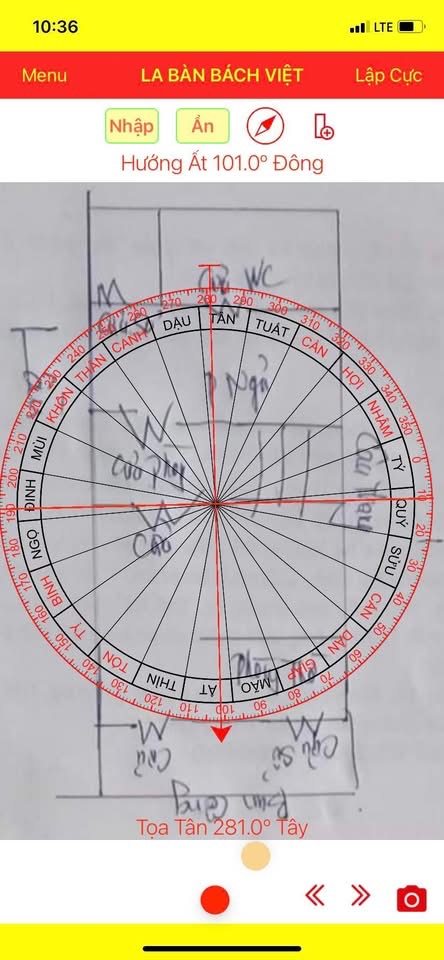 10:36
LTE
Menu
LA BÀN BÁCH VIỆT
Lập Cực
Nhập
Ẩn
Hướng Ất 101.0° Đông
WC
P Ngủ
Cửa
Cửa Sổ
Ban Công
270 280 290 300 310 320 330 340 350 0 10 20 30 40 50 60 70 80 90 100 110 120 130 140 150 160 170 180 190 200 210 220 230 240
TÂN
TUẤT
CÀN
HỢI
NHÂM
TÝ
QUÝ
SỬU
CẤN
DẦN
GIÁP
MÃO
ẤT
THÌN
TỐN
TỴ
BÍNH
NGỌ
ĐINH
MÙI
KHÔN
THÂN
CANH
DẬU
Tọa Tân 281.0° Tây